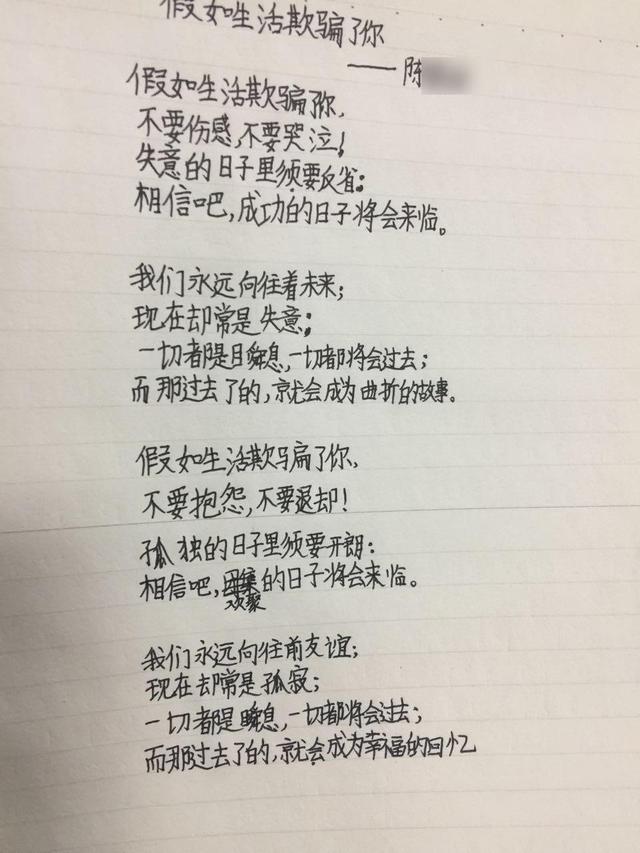 假如生活欺骗了你
——陈
假如生活欺骗了你,
不要伤感,不要哭泣!
失意的日子里须要反省:
相信吧,成功的日子将会来临。
我们永远向往着未来;
现在却常是失意;
一切都是瞬息,一切都将会过去;
而那过去了的,就会成为曲折的故事。
假如生活欺骗了你,
不要抱怨,不要退却!
孤独的日子里须要开朗:
相信吧,的日子将会来临。
欢聚
我们永远向往前友谊;
现在却常是孤寂;
一切都是瞬息,一切都将会过去;
而那过去了的,就会成为幸福的回忆